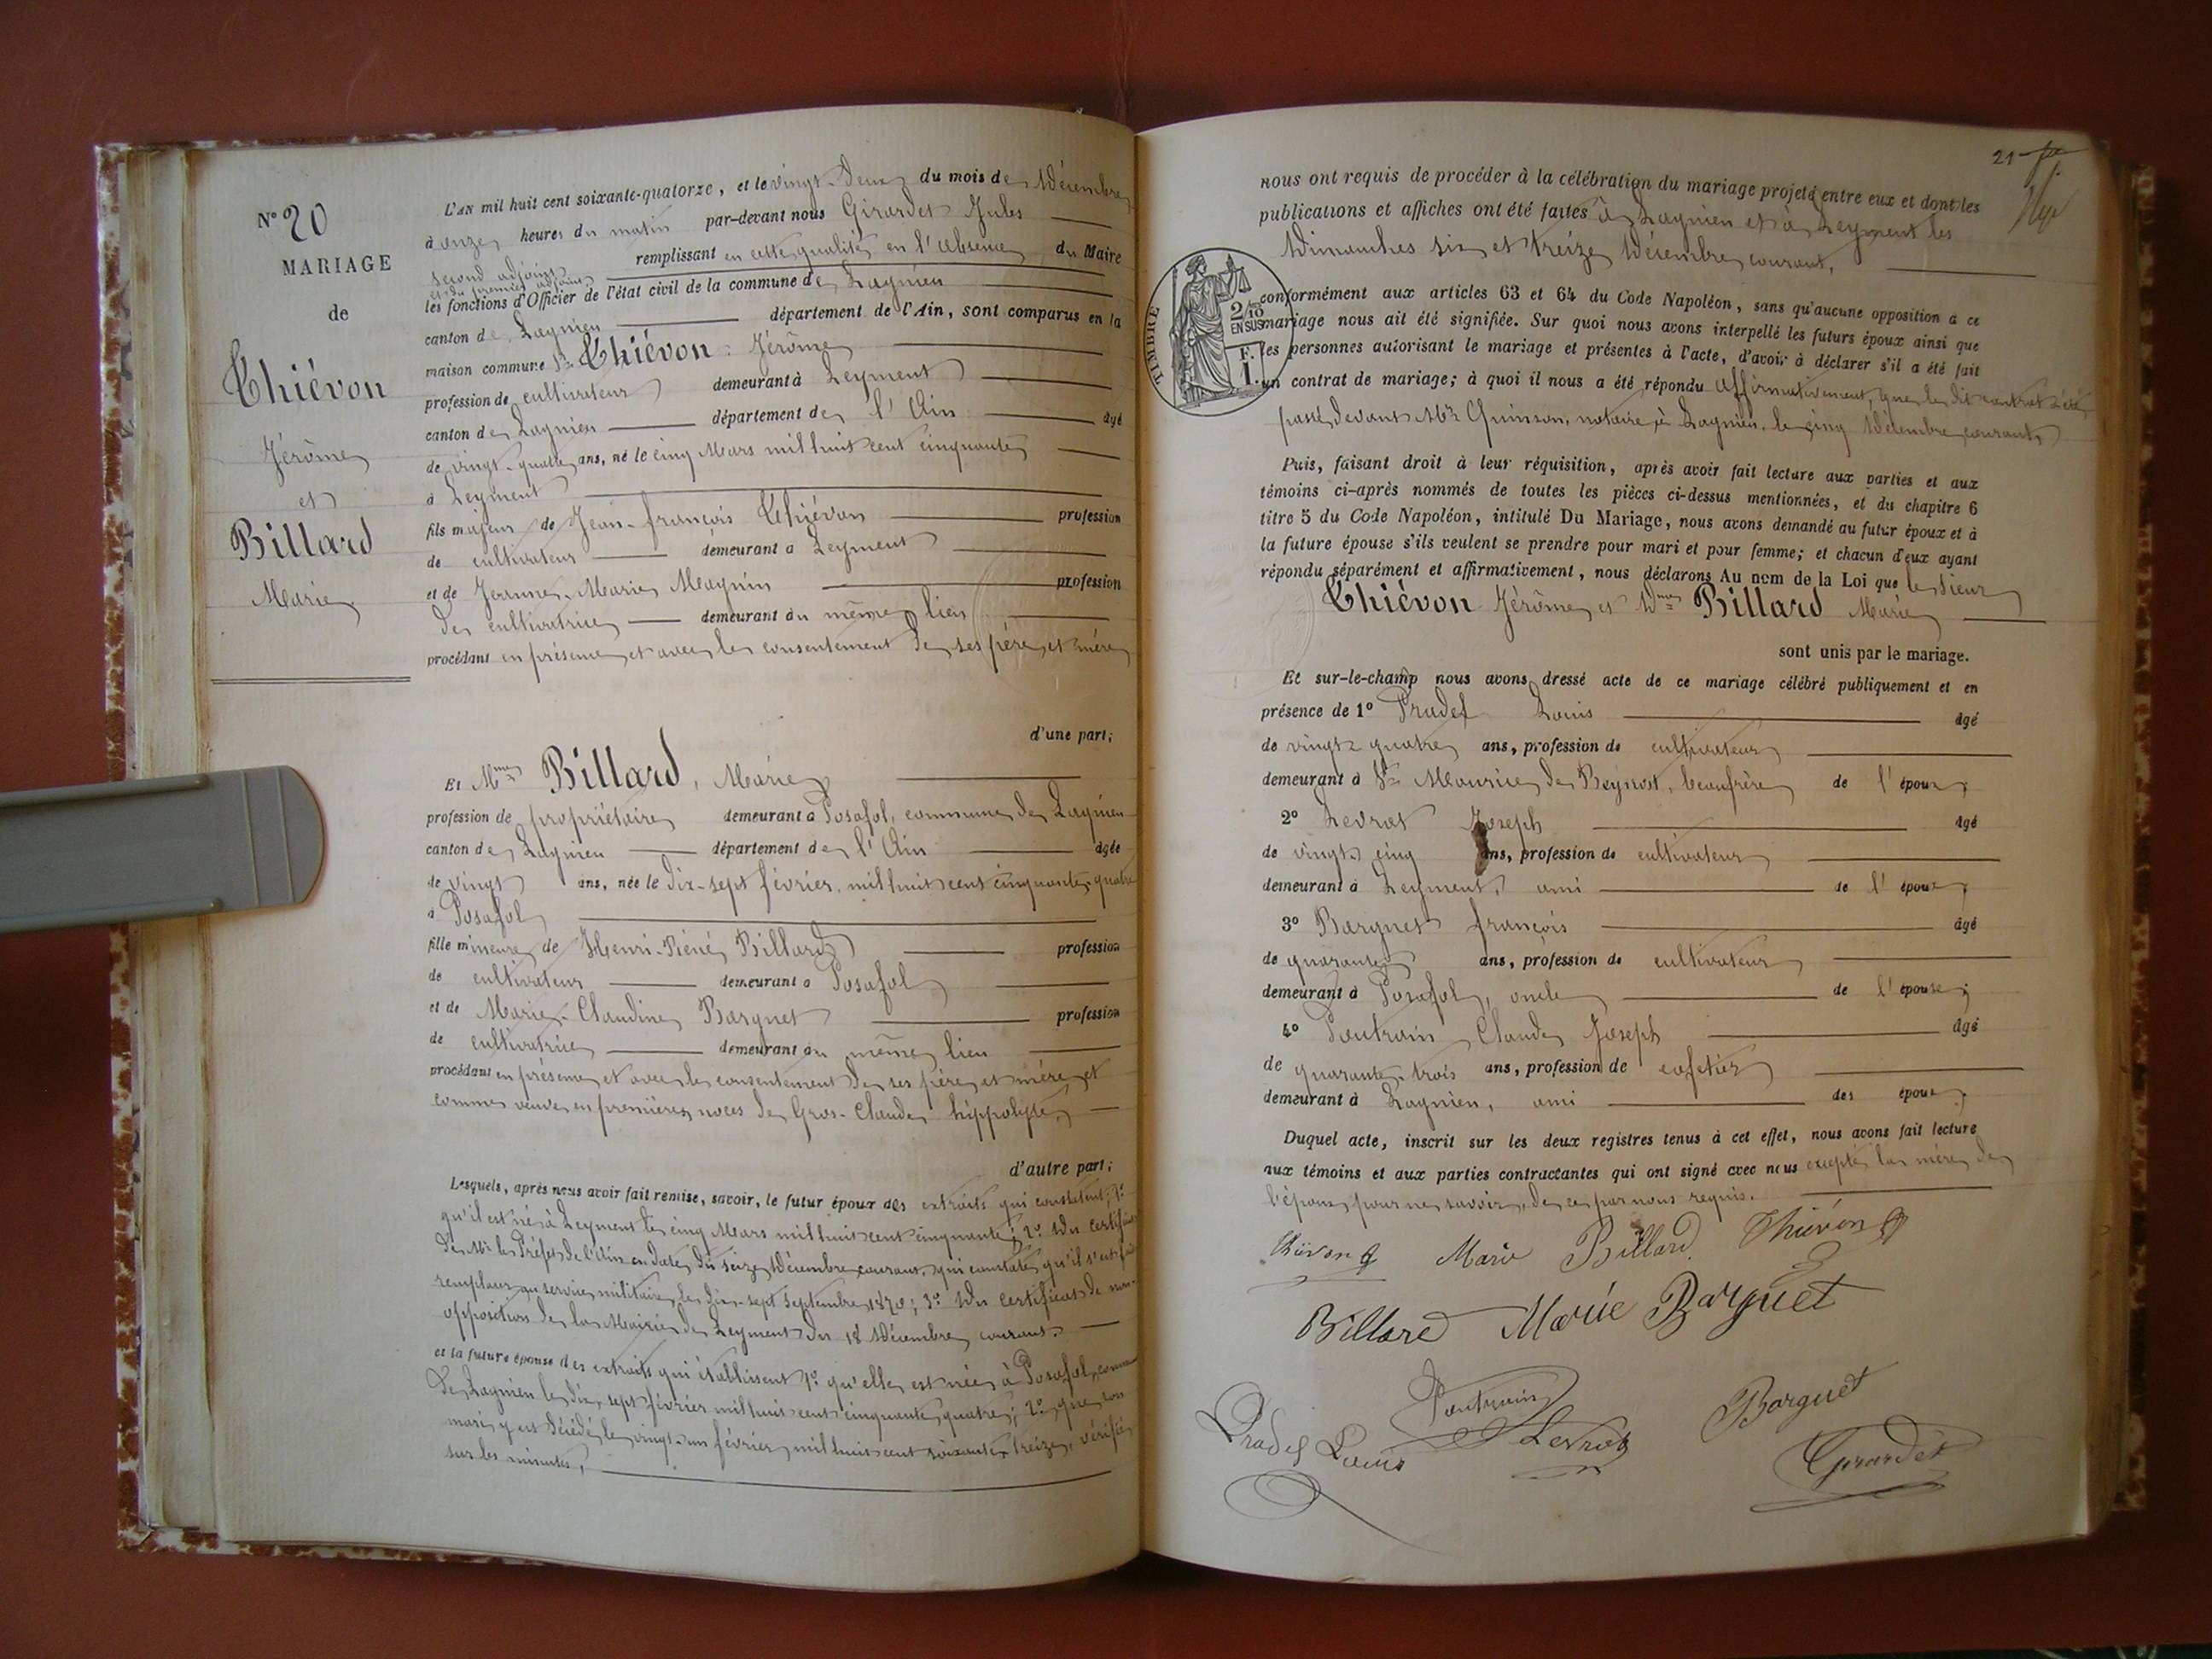 N° 20
MARIAGE
de
Thiévon
Jérôme
et
Billard
Marie
L'AN mil huit cent soixante-quatorze, et le vingt-deux du mois de Décembre
à onze heures du matin par-devant nous Girardet Jules
second adjoint remplissant en cette qualité en l'absence du Maire
et du premier adjoint
les fonctions d'Officier de l'état civil de la commune de Lagnieu
canton de Lagnieu département de l'Ain, sont comparus en la
maison commune Sr Thiévon Jérôme
profession de cultivateur demeurant à Leyment
canton de Lagnieu département de l'Ain âgé
de vingt-quatre ans, né le cinq Mars mil huit cent cinquante
à Leyment
fils majeur de Jean-françois Thiévon profession
de cultivateur demeurant à Leyment
et de Jeanne-Marie Magnin profession
de cultivatrice demeurant au même lieu
procédant en présence et avec le consentement de ses père et mère
d'une part;
Et Mme Billard, Marie
profession de propriétaire demeurant à Posafol, commune de Lagnieu
canton de Lagnieu département de l'Ain âgée
de vingt ans, née le dix-sept février mil huit cent cinquante-quatre
à Posafol
fille mineure de Henri-Réné Billard profession
de cultivateur demeurant à Posafol
et de Marie-Claudine Barguet profession
de cultivatrice demeurant au même lieu
procédant en présence et avec le consentement de ses père et mère et
comme veuve en premières noces de Gros-Claude hippolyte,
d'autre part;
Lesquels, après nous avoir fait remise, savoir, le futur époux des extraits qui constatent, 1°
qu'il est né à Leyment le cinq Mars mil huit cent cinquante; 2° du certificat
de Mr le Préfet de l'Ain en date du seize Décembre courant, qui constate qu'il s'est fait
remplacer au service militaire le dix-sept septembre 1870; 3° du certificat de non-
opposition de la Mairie de Leyment du 18 Décembre courant.
et la future épouse des extraits qui établissent 1° qu'elle est née à Posafol, commune
de Lagnieu le dix-sept février mil huit cent cinquante quatre; 2° que son
mari y est décédé le vingt-un février mil huit cent soixante-treize, vérifié
sur les minutes,
21
nous ont requis de procéder à la célébration du mariage projeté entre eux et dont les
publications et affiches ont été faites à Lagnieu et à Leyment les
Dimanches six et treize Décembre courant,
TIMBRE
2/10
EN SUS
F.
1.
conformément aux articles 63 et 64 du Code Napoléon, sans qu'aucune opposition à ce
mariage nous ait été signifiée. Sur quoi nous avons interpellé les futurs époux ainsi que
les personnes autorisant le mariage et présentes à l'acte, d'avoir à déclarer s'il a été fait
un contrat de mariage; à quoi il nous a été répondu affirmativement, que le dit contrat a été
passé devant Mtre Quinson, notaire à Lagnieu, le cinq Décembre courant
Puis, faisant droit à leur réquisition, après avoir fait lecture aux parties et aux
témoins ci-après nommés de toutes les pièces ci-dessus mentionnées, et du chapitre 6
titre 5 du Code Napoléon, intitulé Du Mariage, nous avons demandé au futur époux et à
la future épouse s'ils veulent se prendre pour mari et pour femme; et chacun d'eux ayant
répondu séparément et affirmativement, nous déclarons Au nom de la Loi que le sieur
Thiévon Jérôme et Dme Billard Marie
sont unis par le mariage.
Et sur-le-champ nous avons dressé acte de ce mariage célébré publiquement et en
présence de 1° Pradel Louis âgé
de vingt-quatre ans, profession de cultivateur
demeurant à St Maurice de Beynost, beaufrère de l'époux;
2° Levrat Joseph âgé
de vingt-cinq ans, profession de cultivateur
demeurant à Leyment, ami de l'époux;
3° Barguet françois âgé
de quarante ans, profession de cultivateur
demeurant à Posafol, oncle de l'épouse;
4° Poutrain Claude Joseph âgé
de quarante-trois ans, profession de cafetier
demeurant à Lagnieu, ami des époux;
Duquel acte, inscrit sur les deux registres tenus à cet effet, nous avons fait lecture
aux témoins et aux parties contractantes qui ont signé avec nous excepté la mère de
l'époux pour ne savoir, de ce par nous requis.
Thiévon Marie Billard Thiévon
Billard Marie Barguet
Poutrain Barguet
Pradel Louis J Levrat Girardet